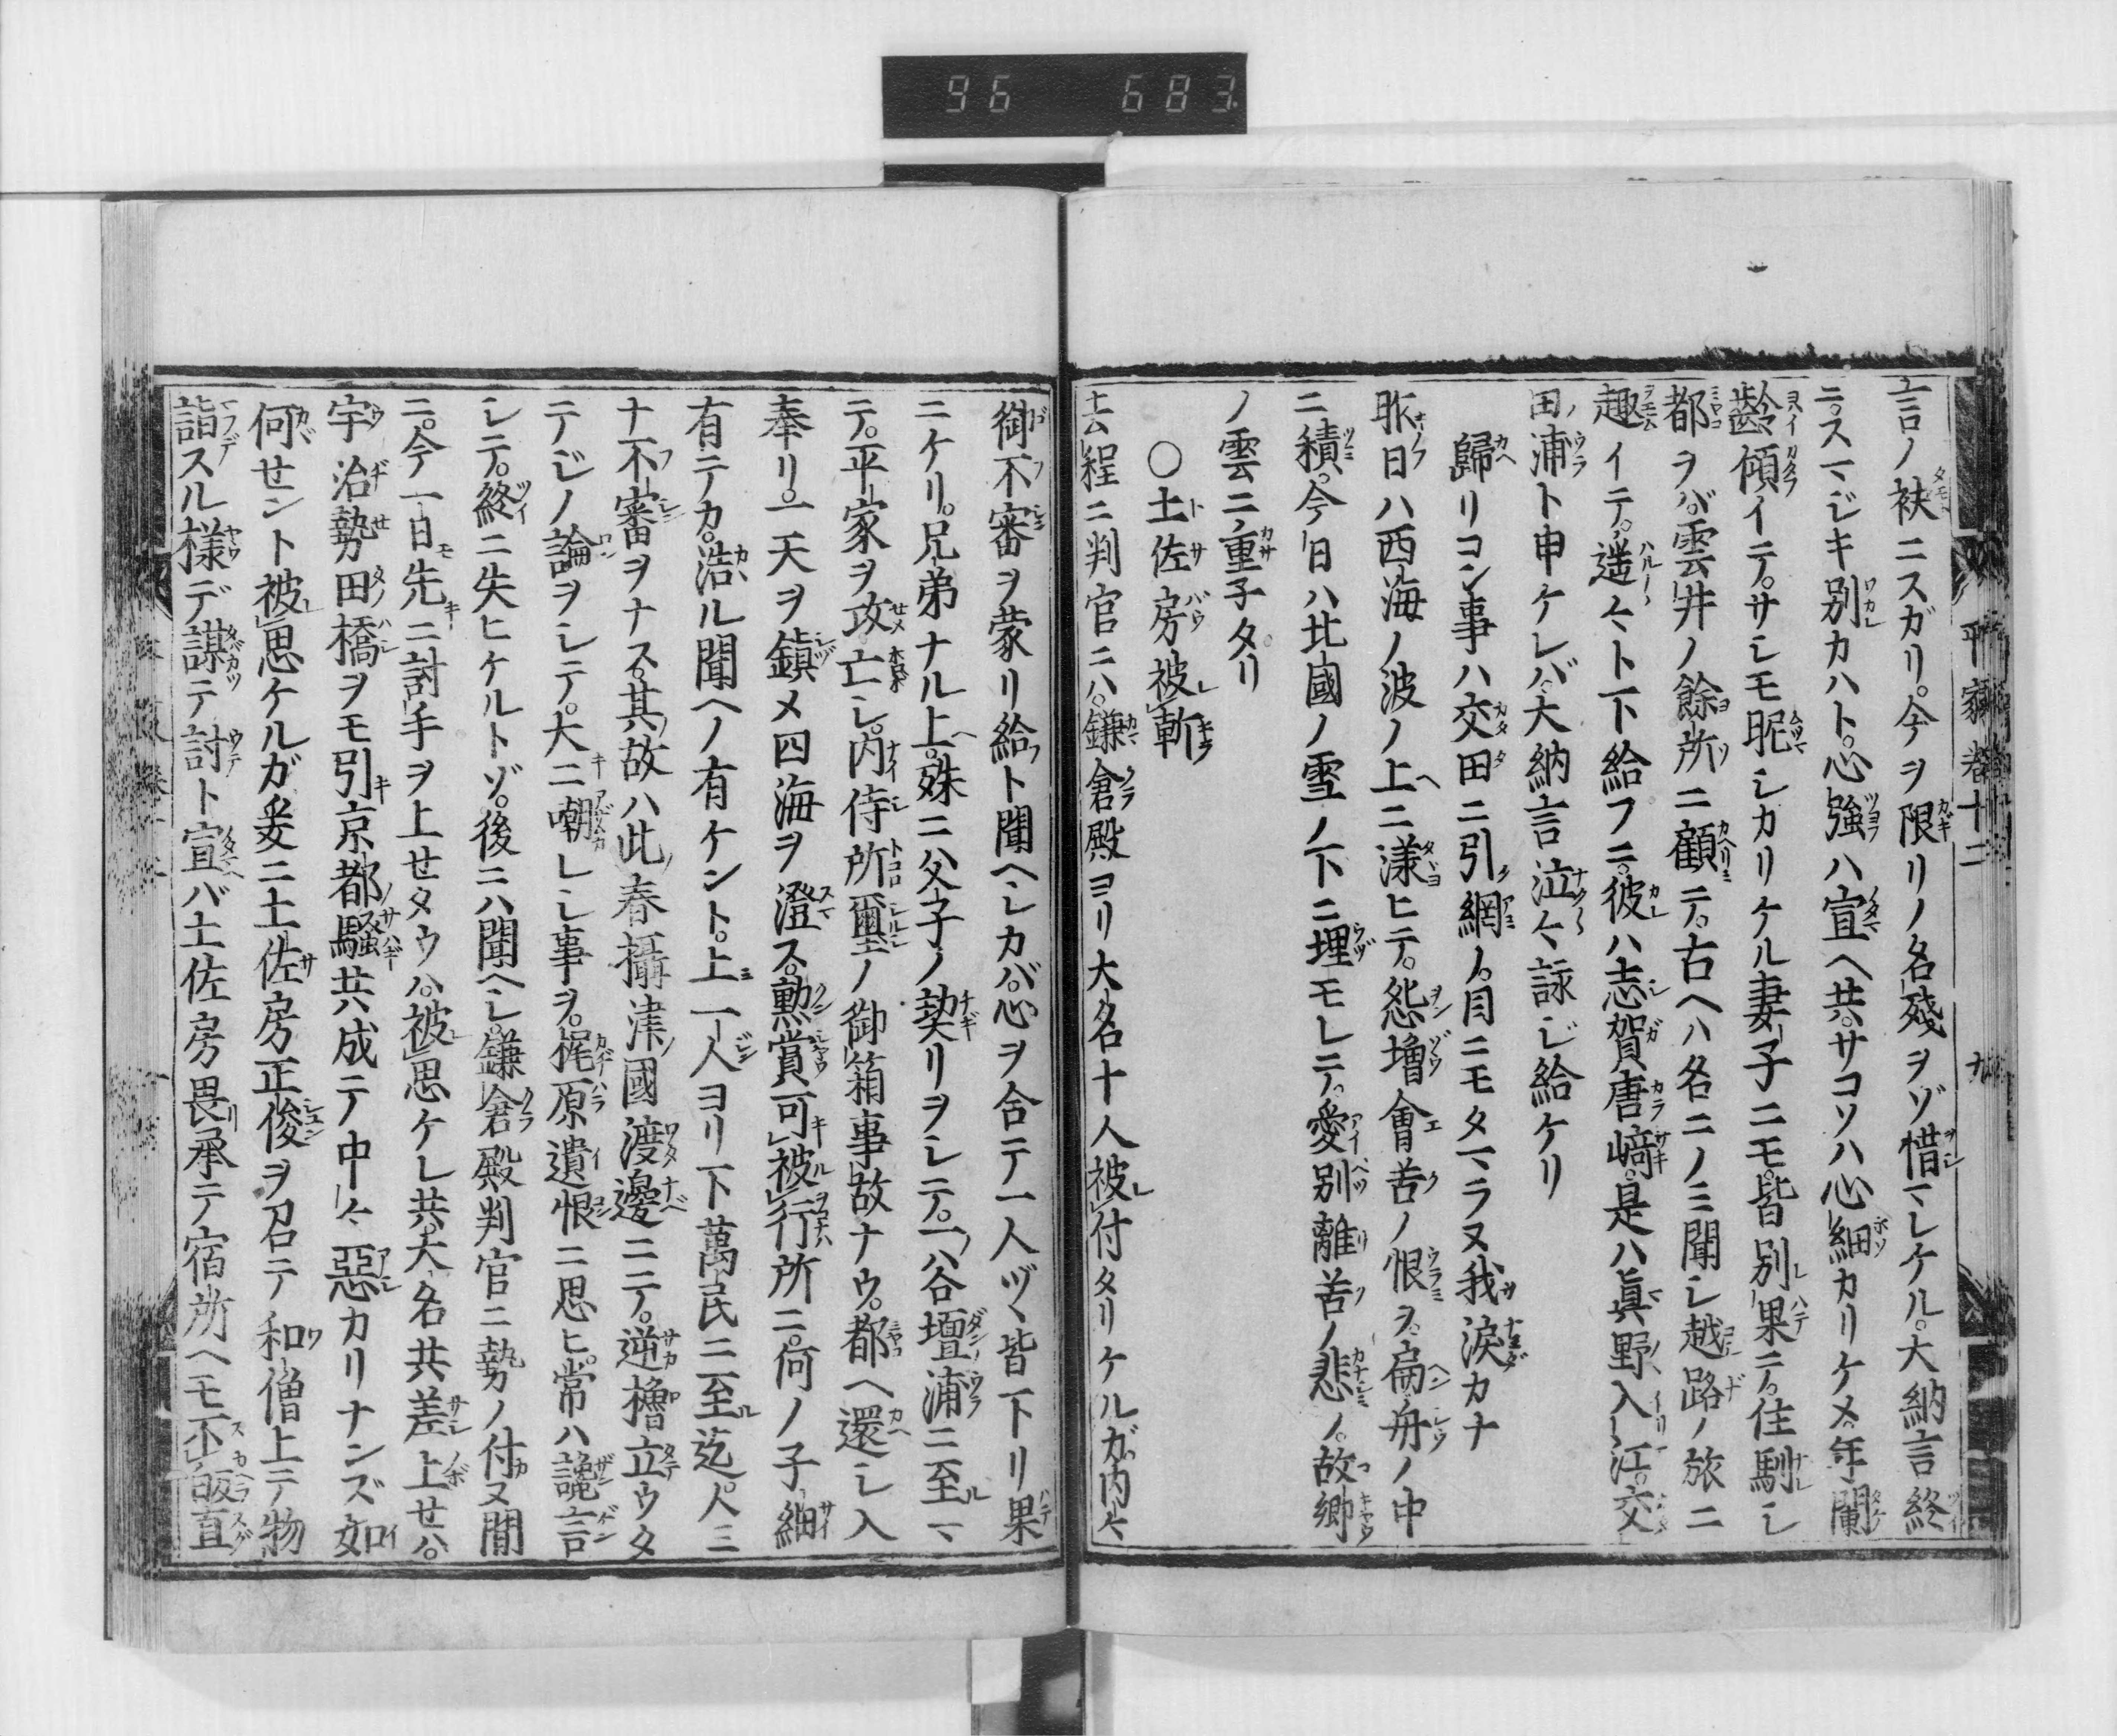 96 683
平家巻十二 九
言ノ袂ニスガリ。今ヲ限リノ名殘ヲゾ惜マレケル。大納言終
ニ。スマジキ別カハト。心強ハ宣ヘ共。サコソハ心細カリケメ。年闌
齡傾イテ。サシモ昵シカリケル妻子ニモ。皆別レ果テ。住馴シ
都ヲバ。雲井ノ餘所ニ顧テ。古ヘハ名ニノミ聞シ越路ノ旅ニ
趣イテ。遥々ト下給フニ。彼ハ志賀唐﨑。是ハ眞野入江。交
田浦ト申ケレバ。大納言泣々詠ジ給ケリ
歸リコン事ハ交田ニ引網ノ。目ニモタマラヌ我涙カナ
昨日ハ西海ノ波ノ上ニ漾ヒテ。怨増會苦ノ恨ヲ。扁舟ノ中
ニ積。今日ハ北國ノ雪ノ下ニ埋モレテ。愛別離苦ノ悲ノ。故郷
ノ雲ニ重子タリ
○土佐房被斬
去程ニ判官ニハ。鎌倉殿ヨリ大名十人被付タリケルガ。内々
御不審ヲ蒙リ給フト聞ヘシカバ。心ヲ合テ一人ヅヽ皆下リ果
ニケリ。兄弟ナル上。殊ニ父子ノ契リヲシテ。一ノ谷壇浦ニ至ルマ
テ。平家ヲ攻亡シ。内侍所璽ノ御箱事故ナウ。都ヘ還シ入
奉リ。一天ヲ鎮メ四海ヲ澄ス。勲賞可被行所ニ。何ノ子細
有テカ。浩ル聞ヘノ有ケント。上一人ヨリ下萬民ニ至ル迄。人ミ
ナ不審ヲナス。其故ハ此春攝津國渡邊ニテ。逆櫓立ウタ
テジノ論ヲシテ。大ニ嘲レシ事ヲ。梶原遺恨ニ思ヒ。常ハ讒言
シテ。終ニ失ヒケルトゾ。後ニハ聞ヘシ。鎌倉殿判官ニ勢ノ付ヌ間
ニ。今一日モ先ニ討手ヲ上セタウハ。被思ケレ共。大名共差上セハ。
宇治勢田橋ヲモ引キ京都ノ騒共成テ中々惡カリナンズ如
何せント被思ケルガ爰ニ土佐房正俊ヲ召テ和僧上テ物
詣スル様デ謀テ討ト宣バ土佐房畏承テ宿所ヘモ不皈直